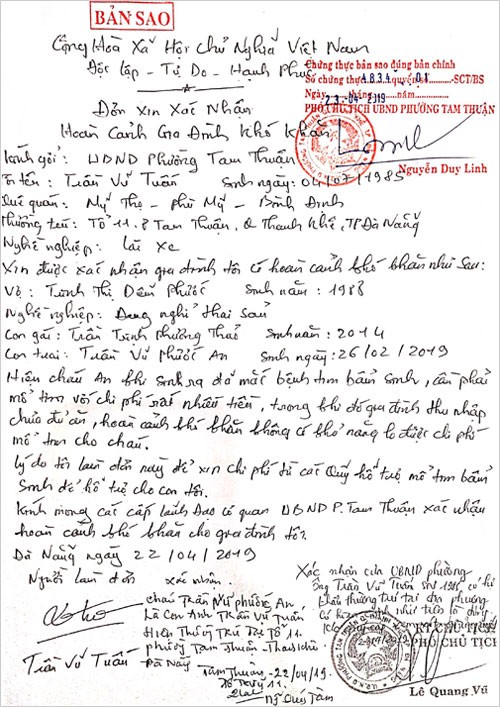 BẢN SAO
Cộng Hoà Xã Hội Chủ Nghĩa Việt Nam
Độc lập - Tự Do - Hạnh Phúc
Chứng thực bản sao đúng bản chính
Số chứng thực 4834 quyển số 01 -SCT/BS
Ngày 23-04-2019
PHÓ CHỦ TỊCH UBND PHƯỜNG TAM THUẬN
Nguyễn Duy Linh
Đơn Xin Xác Nhận
Hoàn Cảnh Gia Đình Khó Khăn
Kính gởi: UBND Phường Tam Thuận
Tôi tên: Trần Vũ Tuấn Sinh ngày: 04/07/1985
Quê quán: Mỹ Thọ - Phù Mỹ - Bình Định
Thường trú: Tổ 11. P Tam Thuận, Q Thanh Khê, TP Đà Nẵng
Nghề nghiệp: lái xe
Xin được xác nhận gia đình tôi có hoàn cảnh khó khăn như sau:
Vợ: Trịnh Thị Diễm Phước Sinh năm: 1988
Nghề nghiệp: Đang nghỉ thai sản
Con gái: Trần Trịnh Phương Thảo Sinh năm: 2014
Con trai: Trần Vũ Phước An Sinh ngày: 26/02/2019
Hiện cháu An khi sinh ra đã mắc bệnh tim bẩm sinh, cần phải
mổ tim với chi phí rất nhiều tiền, trong khi đó gia đình thu nhập
chưa đủ ăn, hoàn cảnh khó khăn không có khả năng lo được chi phí
mổ tim cho cháu.
Lý do tôi làm đơn này để xin chi phí từ các Quỹ hổ trợ mổ tim bẩm
Sinh để hổ trợ cho con tôi.
Kính mong các cấp lãnh đạo cơ quan UBND P. Tam Thuận xác nhận
hoàn cảnh khó khăn cho gia đình tôi.
Đà Nẵng ngày 22/04/2019
Người làm đơn
Trần Vũ Tuấn
xác nhận.
cháu Trần Vũ Phước An
Là Con Anh Trần Vũ Tuấn
Hiện Thường Trú Tại Tổ 11
phường Tam Thuận - Thanh Khê
Đà Nẵng
Tam Thuận - 22/04/19.
Xác nhận của UBND phường
Ông Trần Vũ Tuấn
thường trú tại địa phương
KT. CHỦ TỊCH
PHÓ CHỦ TỊCH
Lê Quang Vũ